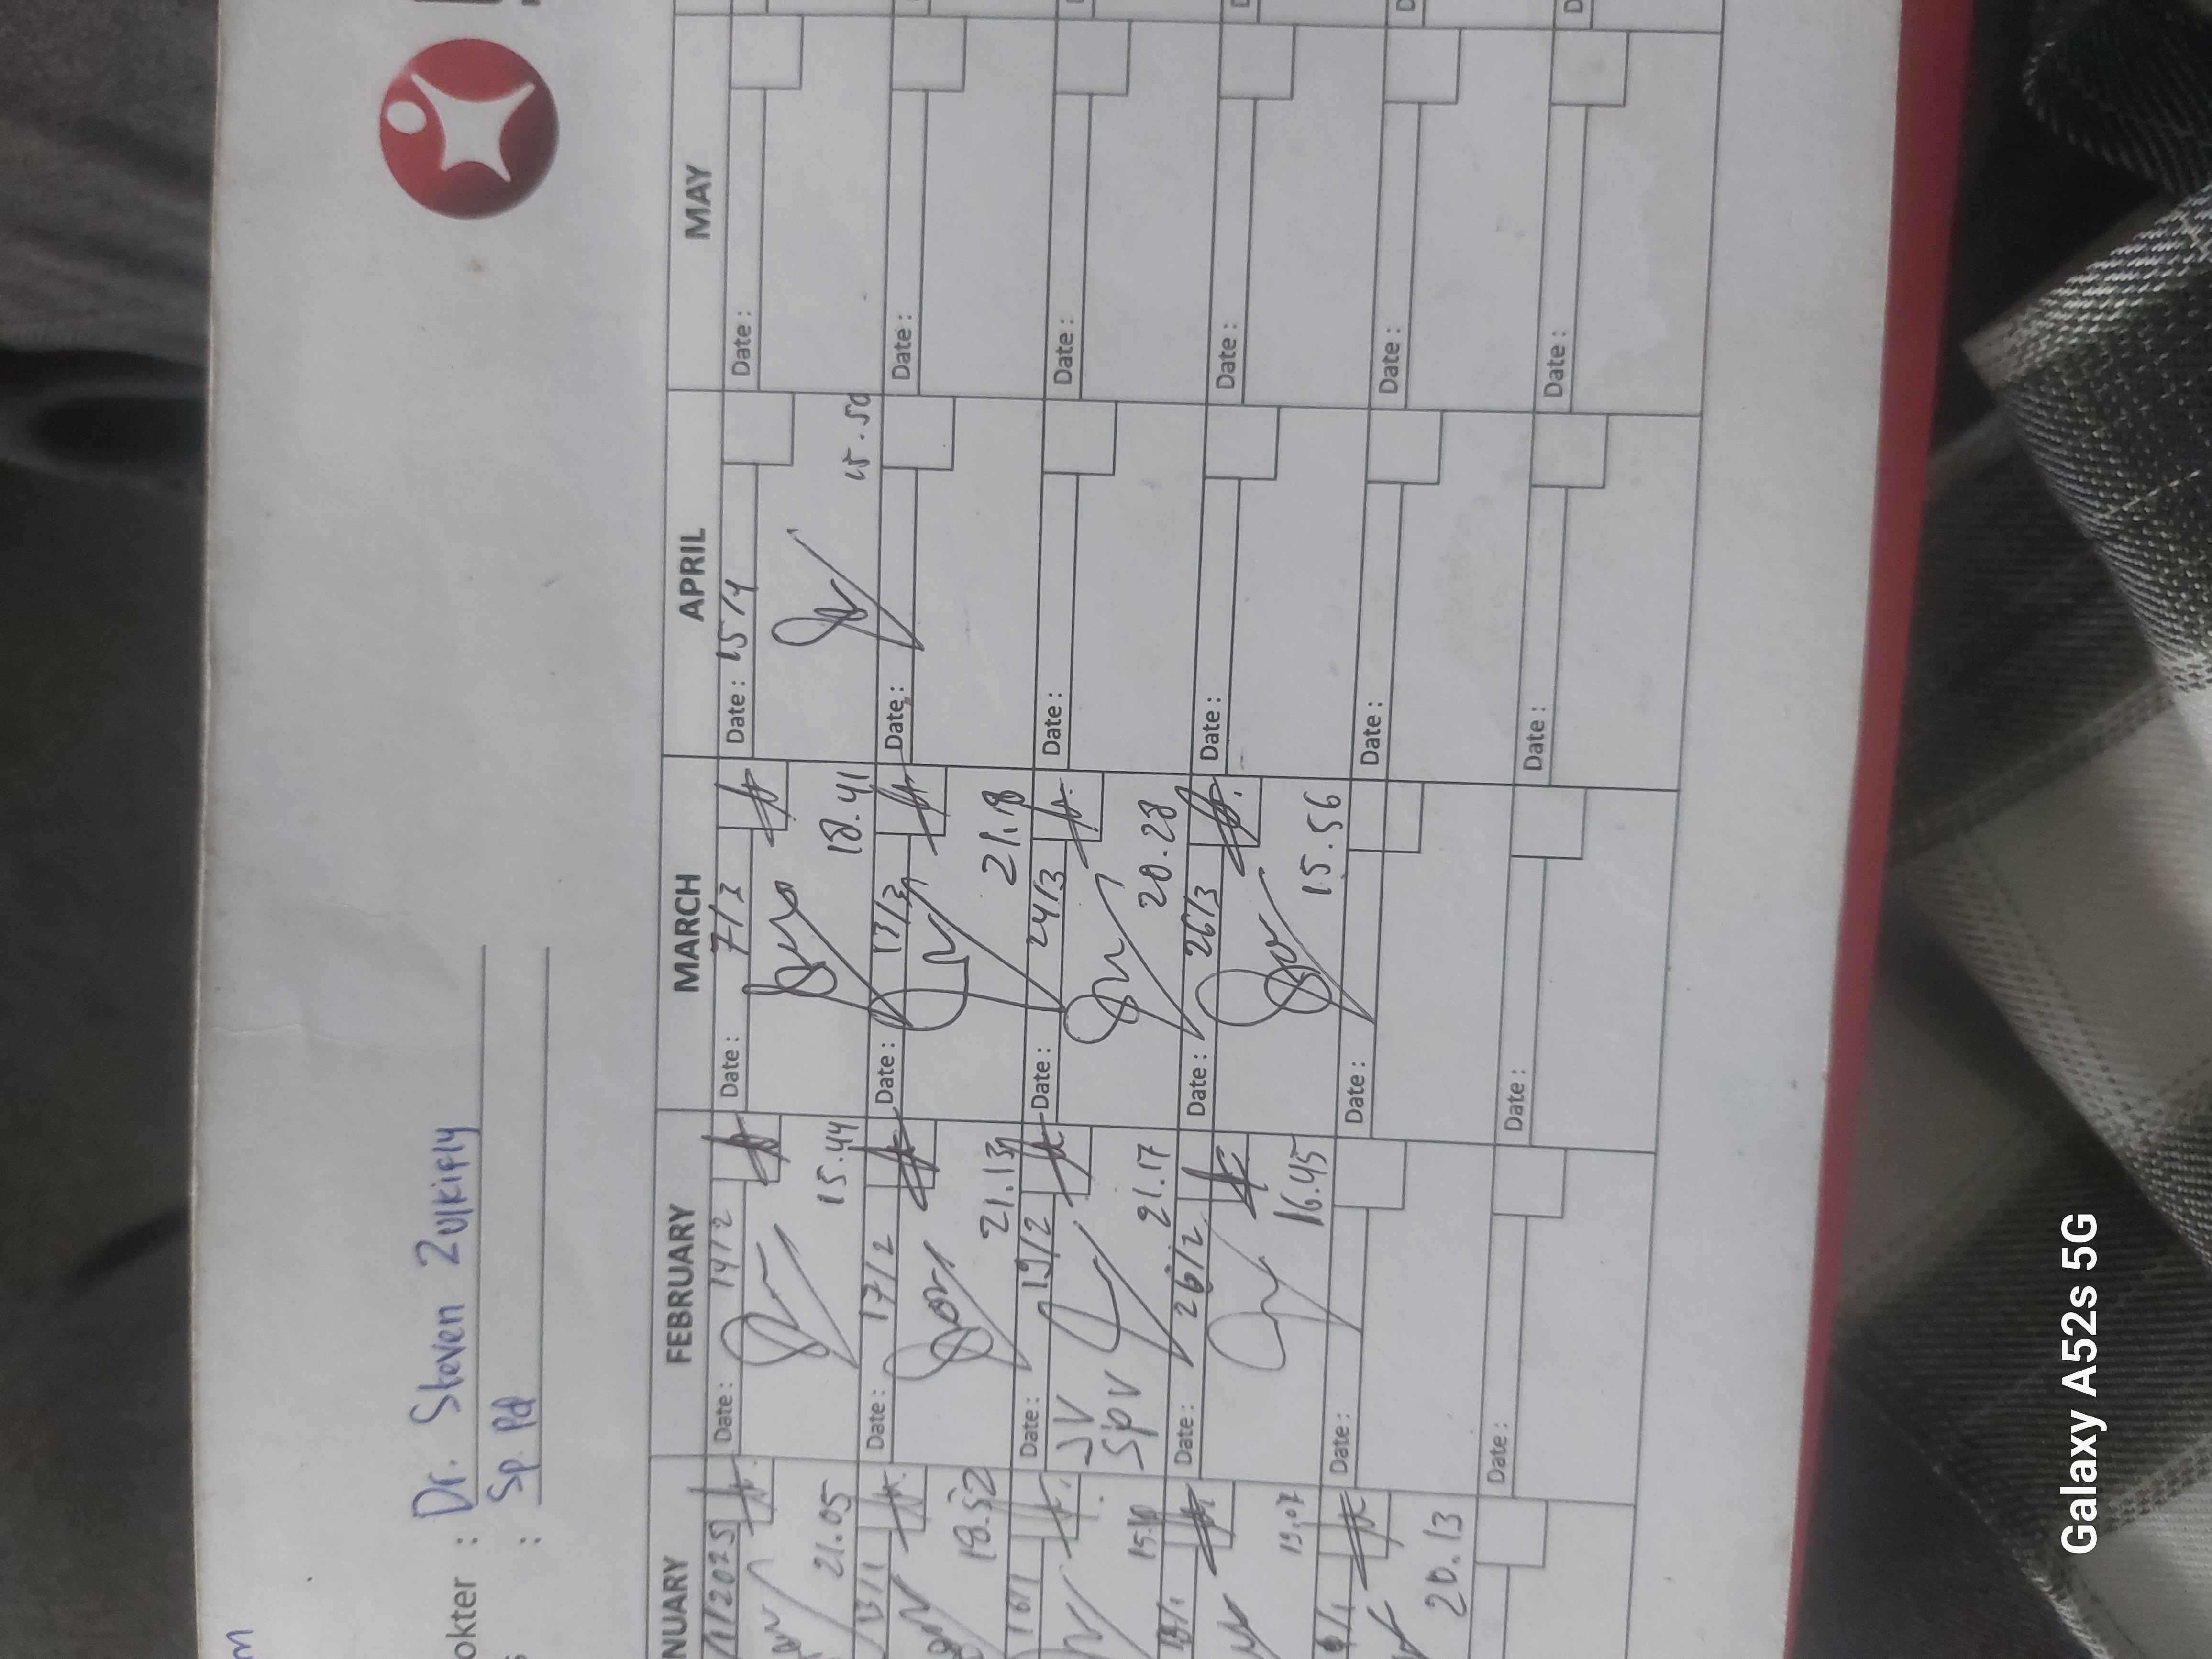 okter : Dr. Steven Zulkifly
: Sp. Pd
NUARY FEBRUARY MARCH APRIL MAY
/1/2025 Date : 14/2 Date : 7/3 Date : 15/4 Date :
21.05 15.44 18.41 15.50
13/1 Date : 17/2 Date : 13/3 Date : Date :
18.52 21.13 21.18
16/1 Date : 19/2 Date : 24/3 Date : Date :
JV
SPV
21.17 20.28
Date : 26/2 Date : 26/3 Date : Date :
19.07 16.45 15.56
Date : Date : Date : Date :
20.13
Date : Date : Date : Date :
Galaxy A52s 5G